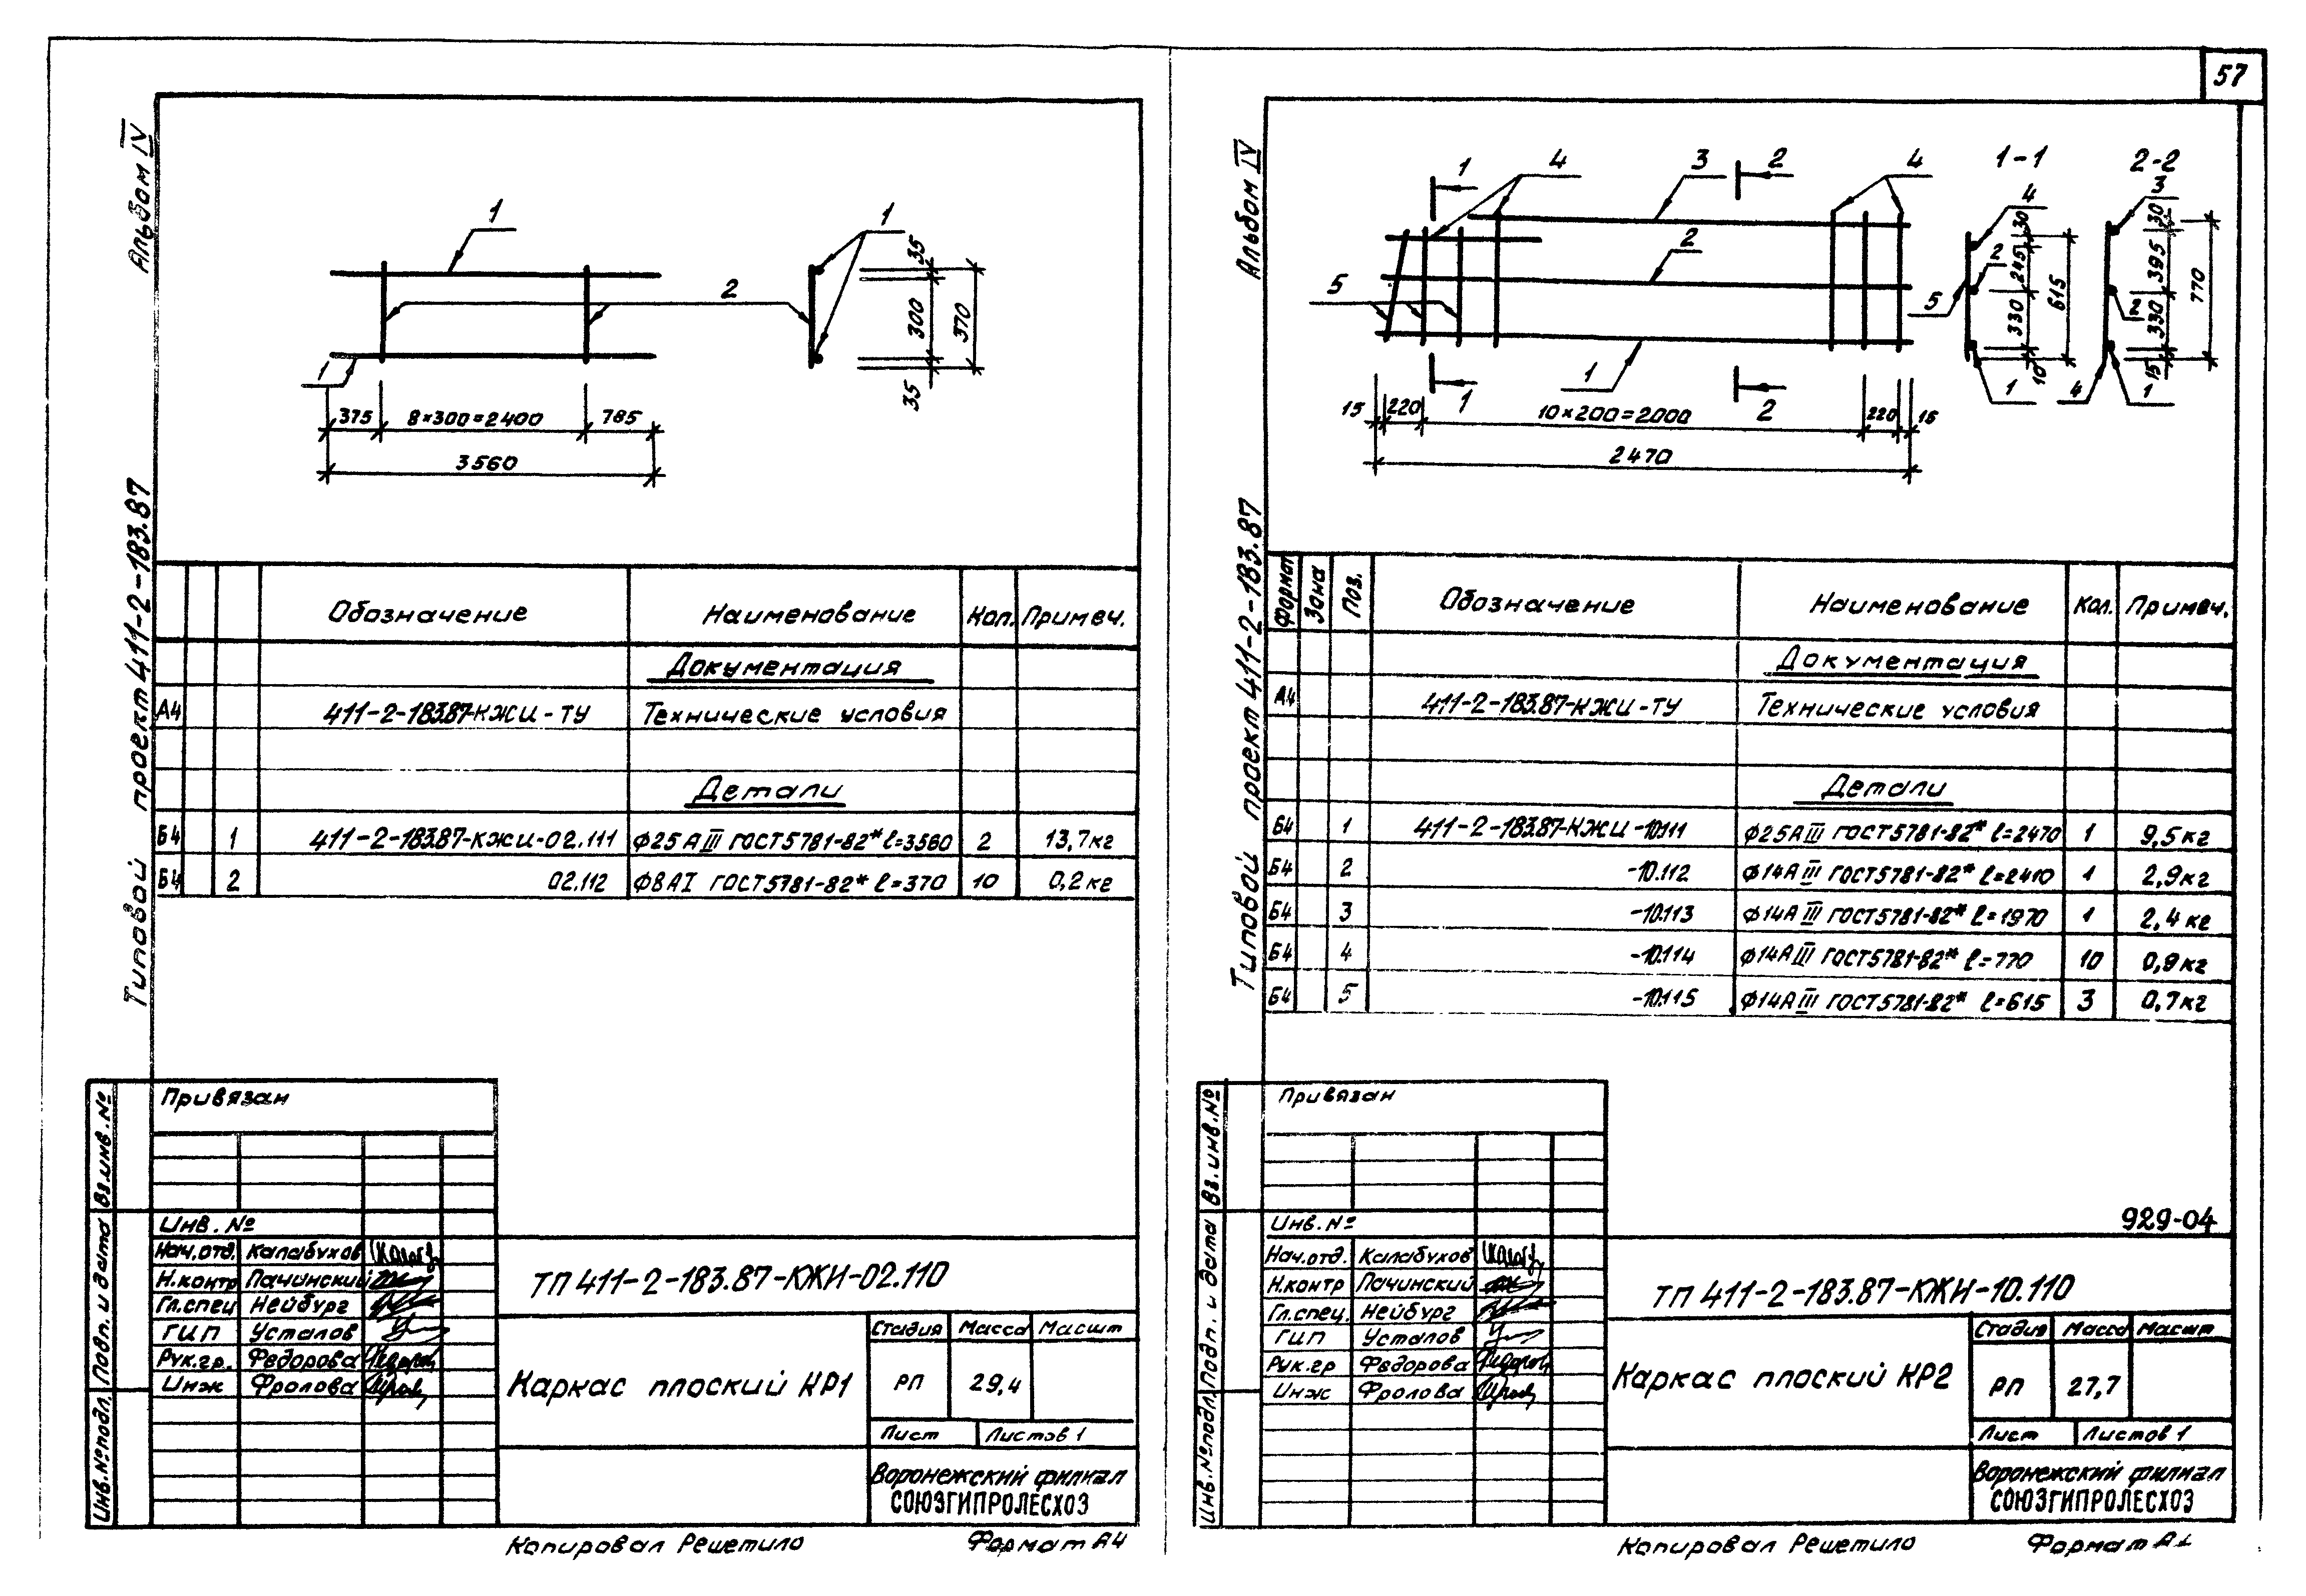 57
Альбом IV
Типовой проект 411-2-183.87
1
1
2
1
35
300
370
35
375
8×300=2400
785
3560
Обозначение Наименование Кол. Примеч.
Документация
А4 411-2-183.87-КЖИ-ТУ Технические условия
Детали
Б4 1 411-2-183.87-КЖИ-02.111 ф25АIII ГОСТ5781-82* ℓ=3560 2 13,7кг
Б4 2 02.112 ф8АI ГОСТ5781-82* ℓ=370 10 0,2кг
Привязан
Инв. №
Нач.отд. Калабухов
Н.контр Пачинский
Гл.спец Нейбург
ГИП Усталов
Рук.гр. Федорова
Инж Фролова
Вз.инв.№
Подп. и дата
Инв.№подл.
ТП 411-2-183.87-КЖИ-02.110
Каркас плоский КР1
Стадия Масса Масшт
РП 29,4
Лист Листов 1
Воронежский филиал
СОЮЗГИПРОЛЕСХОЗ
Копировал Решетило Формат А4
Альбом IV
Типовой проект 411-2-183.87
1 4 3 2 4
2
5
1
1 2
15 220 10×200=2000 220 15
2470
1-1
4
30
2
245
615
5
330
10
1
2-2
3
30
395
770
2
330
15
4 1
Формат Зона Поз. Обозначение Наименование Кол. Примеч.
Документация
А4 411-2-183.87-КЖИ-ТУ Технические условия
Детали
Б4 1 411-2-183.87-КЖИ-10.111 ф25АIII ГОСТ5781-82* ℓ=2470 1 9,5кг
Б4 2 -10.112 ф14АIII ГОСТ5781-82* ℓ=2410 1 2,9кг
Б4 3 -10.113 ф14АIII ГОСТ5781-82* ℓ=1970 1 2,4кг
Б4 4 -10.114 ф14АIII ГОСТ5781-82* ℓ=770 10 0,9кг
Б4 5 -10.115 ф14АIII ГОСТ5781-82* ℓ=615 3 0,7кг
Привязан
Инв.№
929-04
Нач.отд. Калабухов
Н.контр Пачинский
Гл.спец. Нейбург
ГИП Усталов
Рук.гр Федорова
Инж Фролова
Вз.инв.№
Подп. и дата
Инв.№подл.
ТП 411-2-183.87-КЖИ-10.110
Каркас плоский КР2
Стадия Масса Масшт
РП 27,7
Лист Листов 1
Воронежский филиал
СОЮЗГИПРОЛЕСХОЗ
Копировал Решетило Формат